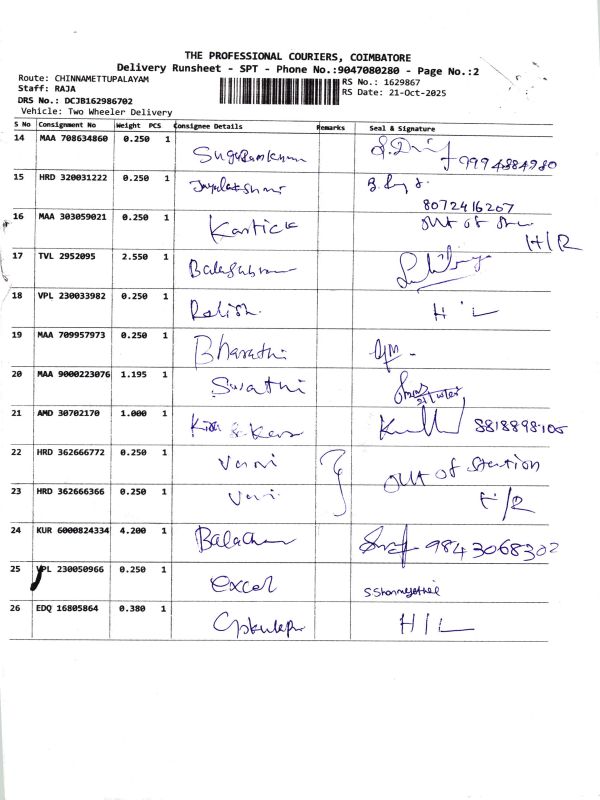 THE PROFESSIONAL COURIERS, COIMBATORE
Delivery Runsheet - SPT - Phone No.:9047080280 - Page No.:2
Route: CHINNAMETTUPALAYAM
RS No.: 1629867
Staff: RAJA
RS Date: 21-Oct-2025
DRS No.: DCJB162986702
Vehicle: Two Wheeler Delivery
S No Consignment No Weight PCS Consignee Details Remarks Seal & Signature
14 MAA 708634860 0.250 1
15 HRD 320031222 0.250 1 Jayalakshmi
8072416207
16 MAA 303059021 0.250 1 Kartick out of
H/R
17 TVL 2952095 2.550 1
18 VPL 230033982 0.250 1 H/L
19 MAA 709957973 0.250 1 Bharathi
20 MAA 9000223076 1.195 1 Swathi
21 AMD 30702170 1.000 1
22 HRD 362666772 0.250 1 out of station
23 HRD 362666366 0.250 1 H/R
24 KUR 6000824334 4.200 1 9843068302
25 VPL 230050966 0.250 1 Excel
26 EDQ 16805864 0.380 1 H/L